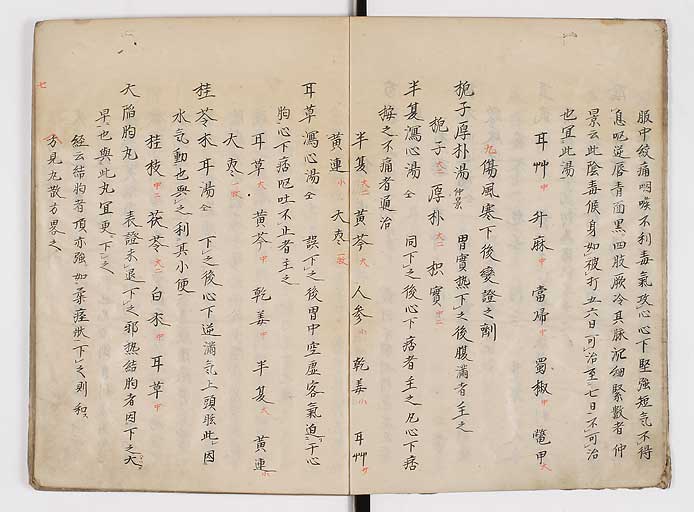 服中絞痛咽喉不利毒氣攻心心下堅強短気不得
息嘔逆唇青面黒四肢厥冷其脉沉細緊数者仲
景云此陰毒候身如被打五六日可治至七日不可治
也宜此湯
耳艸中 升麻中 當帰中 蜀椒中 鼈甲大
九傷風寒下後變證之劑
梔子厚朴湯仲景 胃實熱下之後腹満者主之
梔子大二 厚朴大二 枳實中二
半夏瀉心湯仝 同下之後心下痞者主之凡心下痞
按之不痛者通治
半夏大二 黄芩大 人参小 乾姜小 耳艸
黄連小 大枣一
耳草瀉心湯仝 誤下之後胃中空虚客氣迫于心
胸心下痞嘔吐不止者主之
耳草大 黄芩中 乾姜中 半夏大 黄連小
大枣
桂苓朮耳湯仝 下之後心下逆満気上頭眩此因
水気動也與之利其小便
桂枝中二 茯苓大二 白朮中 耳草中
大陥胸丸 表證未退下之邪熱結胸者因下之大
早也與此丸宜更下之
経云結胸者項亦強如柔痓状下之則和
方見丸散方畧之
七